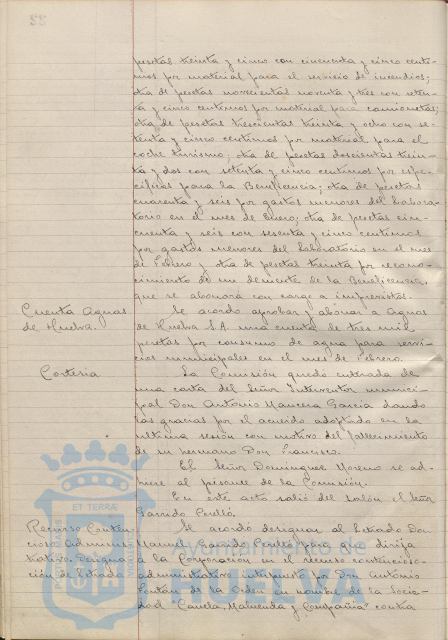 pesetas treinta y cinco con cincuenta y cinco cénti-
mos por material para el servicio de incendios;
otra de pesetas novecientas noventa y tres con seten-
ta y cinco centimos por material para camionetas;
otra de pesetas trescientas treinta y ocho con se-
tenta y cinco centimos por material para el
coche turismo; otra de pesetas doscientas trein-
ta y dos con setenta y cinco centimos por espe-
cificos para la Beneficencia; otra de pesetas
cuarenta y seis por gastos menores del Labora-
torio en el mes de Enero; otra de pesetas cin-
cuenta y seis con sesenta y cinco centimos
por gastos menores del Laboratorio en el mes
de Febrero y otra de pesetas treinta por recono-
cimiento de un demente de la Beneficencia,
que se abonará con cargo a imprevistos.
Cuenta Aguas
de Huelva.
Se acordó aprobar y abonar a Aguas
de Huelva S.A. una cuenta de tres mil
pesetas por consumo de agua para servi-
cios municipales en el mes de Febrero.
Cortesia
La Comisión quedó enterada de
una carta del Señor Interventor munici-
pal Don Antonio Mancera Garcia dando
las gracias por el acuerdo adoptado en la
ultima sesión con motivo del fallecimiento
de su hermano Don Francisco.
El Señor Dominguez Moreno se ad-
hiere al pésame de la Comisión.
En este acto salió del salón el Señor
Garrido Perelló.
Recurso Conten-
cioso Adminis-
trativo. Designa-
ción de Letrado
Se acordó designar al Letrado Don
Manuel Garrido Perelló para que dirija
a la Corporación en el recurso contencioso-
administrativo interpuesto por Don Antonio
de la Orden en nombre de la Socie-
dad "Canela, y Compañia" contra
ET TERRÆ
Ayuntamiento de
HUELVA